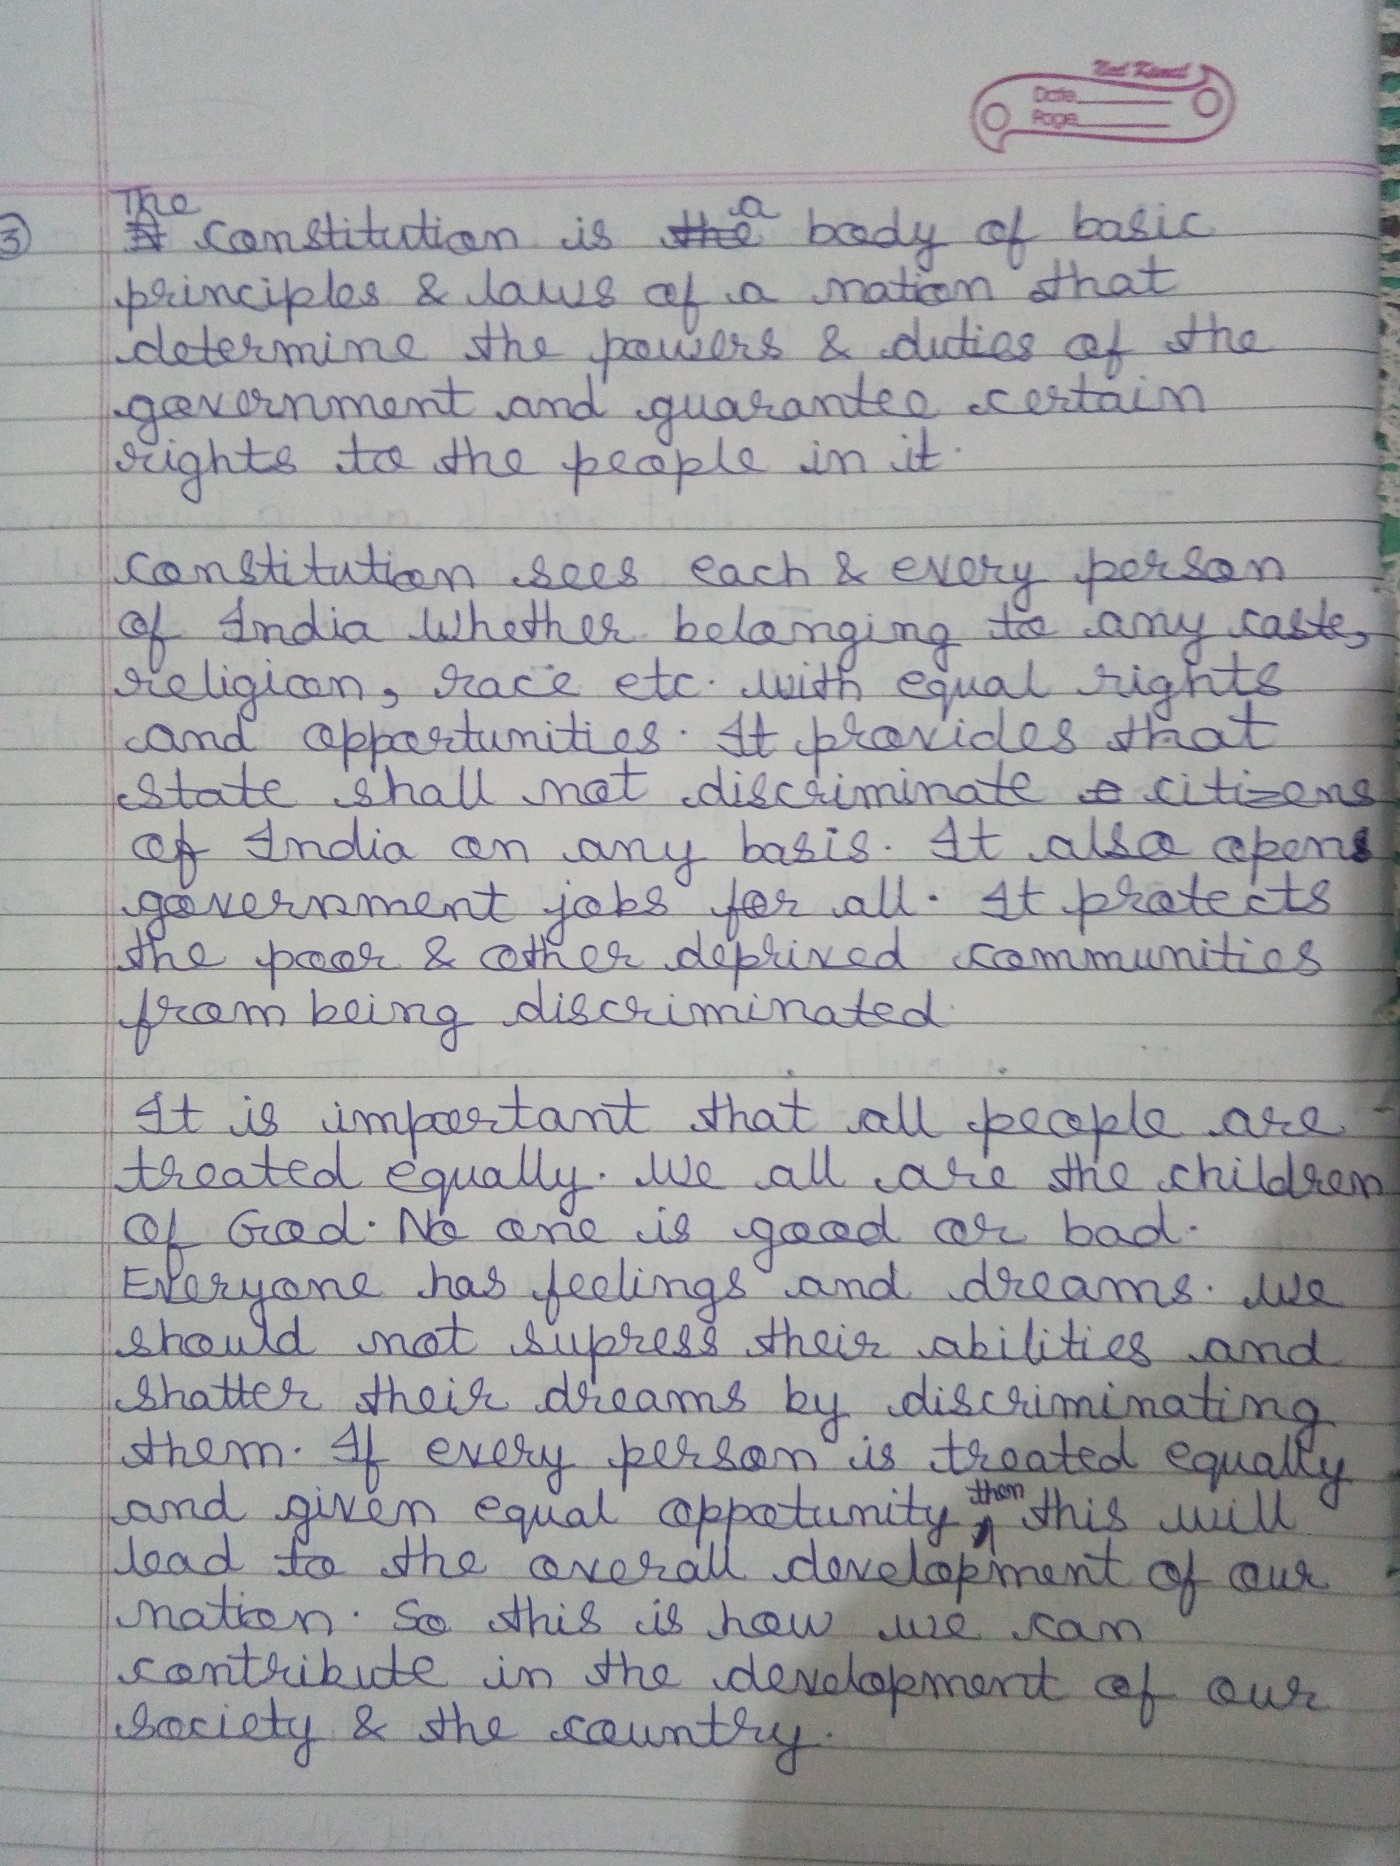 Date
Page
3 The constitution is a body of basic
principles & laws of a nation that
determine the powers & duties of the
government and guarantee certain
rights to the people in it.
constitution sees each & every person
of India whether belonging to any caste,
religion, race etc. with equal rights
and opportunities. It provides that
state shall not discriminate citizens
of India on any basis. It also opens
government jobs for all. It protects
the poor & other deprived communities
from being discriminated.
It is important that all people are
treated equally. We all are the children
of God. No one is good or bad.
Everyone has feelings and dreams. We
should not supress their abilities and
shatter their dreams by discriminating
them. If every person is treated equally
and given equal oppotunity then this will
lead to the overall development of our
nation. So this is how we can
contribute in the development of our
society & the country.